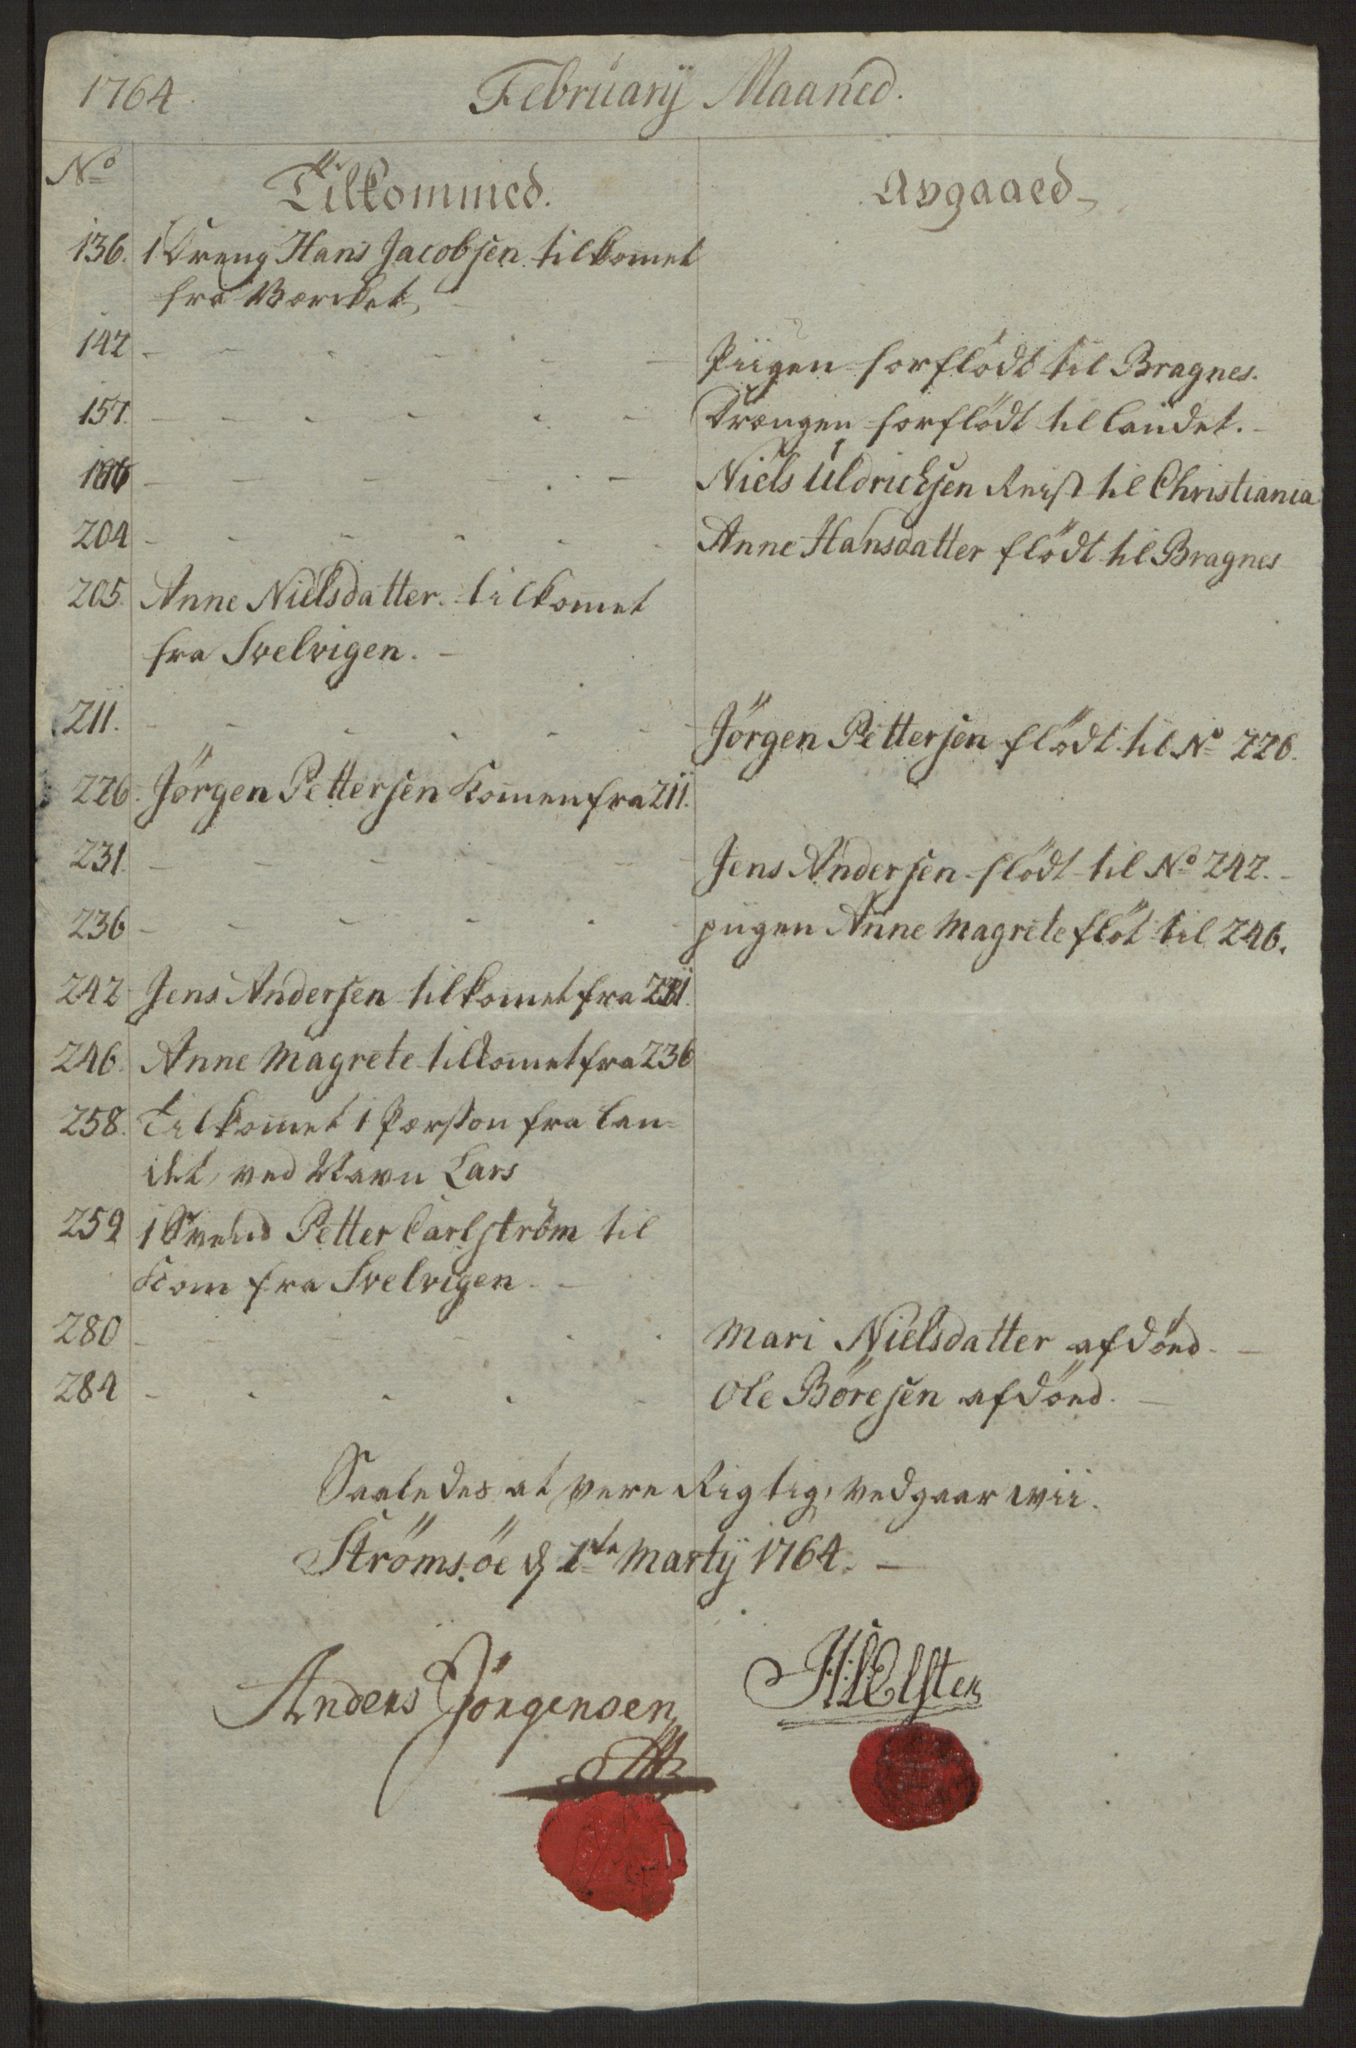 1764 Februarij Maaned.
No Tilkommed. Avgaaed
136. 1 Dreng Hans Jacobsen tilkomet
fra Værcket,
142 Piigen forflödt til Bragnes.
157. Drængen forflödt til landet.
Niels Uldrichsen Reist til Christiania
204 Anne Hansdatter flödt til Bragnes
205. Anne Nielsdatter tilkomet
fra Svelvigen.
211. Jörgen Pettersen flödt til No 226.
226. Jörgen Pettersen Komen fra 211.
231. Jens Andersen flödt til No 242.
236 piigen Anne Magrete flöt til 246.
242 Jens Andersen tilkomet fra 231.
246. Anne Magrete tilkomet fra 236
258. Tilkomet 1 Person fra lan=
det, ved Navn Lars
259 1 Svend Petter Carlström til
Kom fra Svelvigen
280 Mari Nielsdatter afdöed.
284 Ole Böresen afdöed.
Saaledes at være Rigtig, vedgaar wii.
Strömsöe d 1te Martij 1764.
Anders Jörgensen H Elster